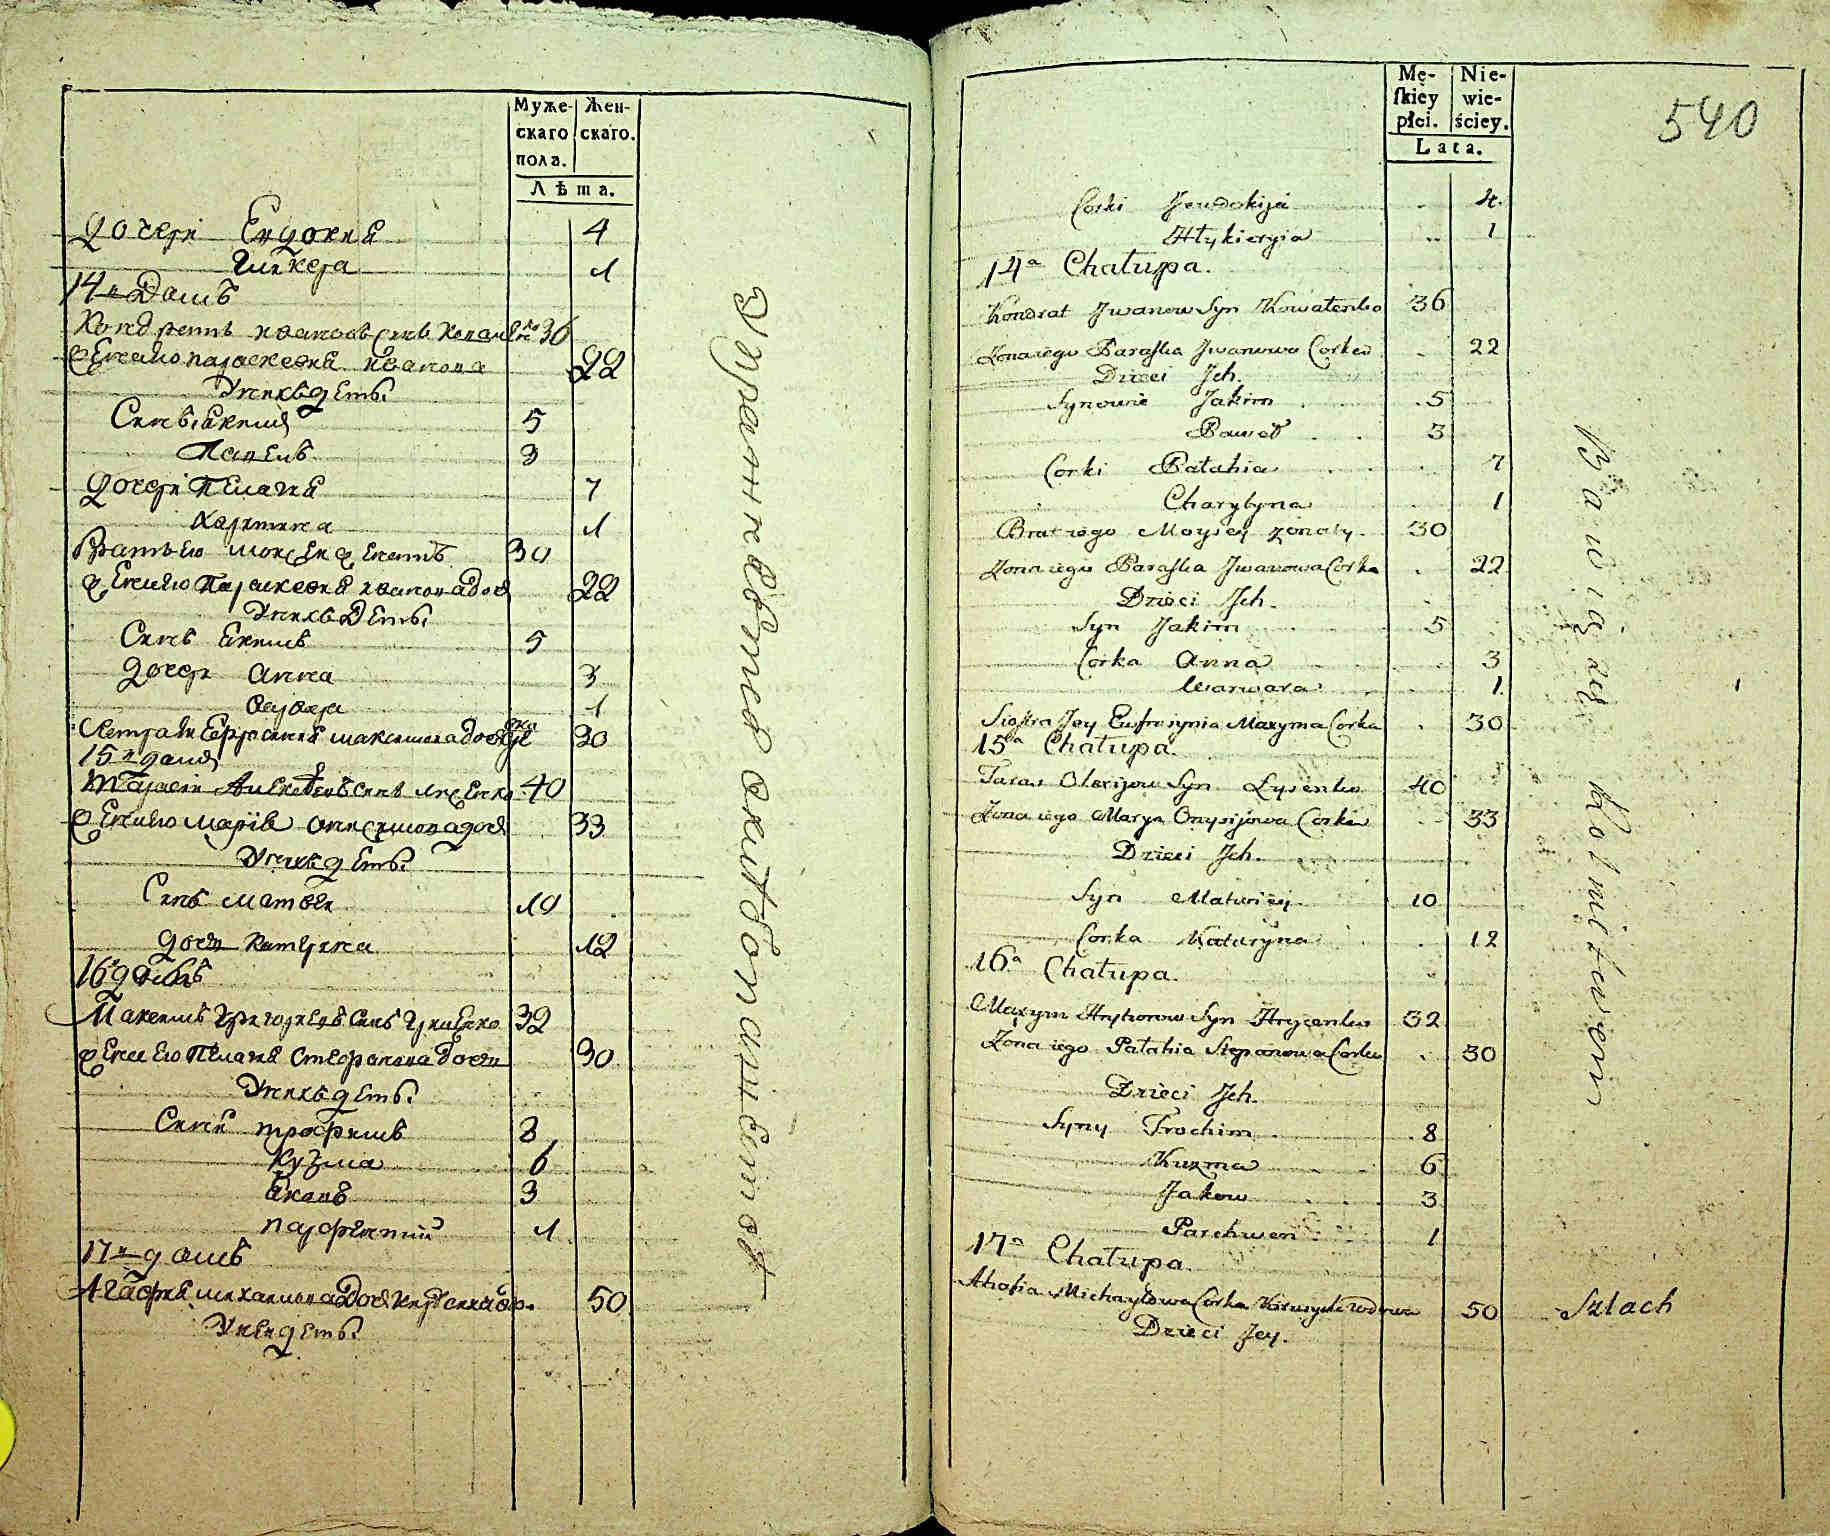 Муже-
скаго
пола.
Жен-
скаго.
Лѣта.
дочери Евдокия 4
Гликера 1
14 й Домъ
Кондратъ Ивановъ синъ Ковале 36
жена его параскевия иванова 22
У них дети:
Синъ Яким 5
Павелъ 3
дочери Пелагия 7
Харитина 1
Братъ его моисей женатъ 30
жена его Параскевия иванова доч 22
У нихъ Дети:
Синъ Якимъ 5
дочери Анна 3
1
Сестра Ефросиния максимова доч 30
15 й дом
Тарасий синъ лисенко 40
жена его Мария доч 33
У нихъ дети:
Синъ матвей 10
дочь катерина 12
16 й домъ
Максимъ Григориевъ синъ Гриценко 32
жена его Пелагия Стефанова дочь 30
У нихъ дети:
Сини трофимъ 8
Кузма 6
Яковъ 3
парфентий 1
17 й домъ
Агафия михаилова Доч 50
У ней дети:
Męskiey
płci.
Niewieściey.
Lata.
540
Corki Jewdokija 4
Hłykieryia 1
14a Chałupa.
Kondrat Jwanow Syn Kowalenko 36
Żona iego Paraska Jwanowa Corka 22
Dzieci Jch.
Synowie Jakim 5
Paweł 3
Corki Pałahia 7
Charytyna 1
Brat iego Moysey żonaty 30
Żona iego Paraska Jwanowa Corka 22
Dzieci Jch.
Syn Jakim 5
Corka Anna 3
Warwara 1
Siostra Jey Eufrosynia Maxyma Corka 30
15a Chałupa.
Taras Olexijow Syn Łysenko 40
Żona iego Marya Onysijowa Corka 33
Dzieci Jch.
Syn Matwiey 10
Corka Kataryna 12
16a Chałupa.
Maxym Hryhorow Syn Hrycenko 32
Żona iego Pałahia Stepanowa Corka 30
Dzieci Jch.
Syny Trochim 8
Kuzma 6
Jakow 3
Parchwen 1
17a Chałupa.
Ahafia Michayłowa Corka wdowa 50
Dzieci Jey.
Szlach